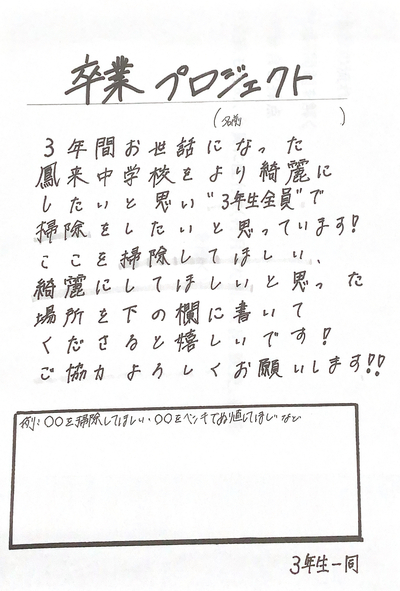 卒業プロジェクト
(名前 )
3年間お世話になった
鳳来中学校をより綺麗に
したいと思い"3年生全員"で
掃除をしたいと思っています!
ここを掃除してほしい、
綺麗にしてほしいと思った
場所を下の欄に書いて
くださると嬉しいです!
ご協力よろしくお願いします!!
例:〇〇を掃除してほしい・〇〇をペンキでぬり直してほしいなど
3年生一同